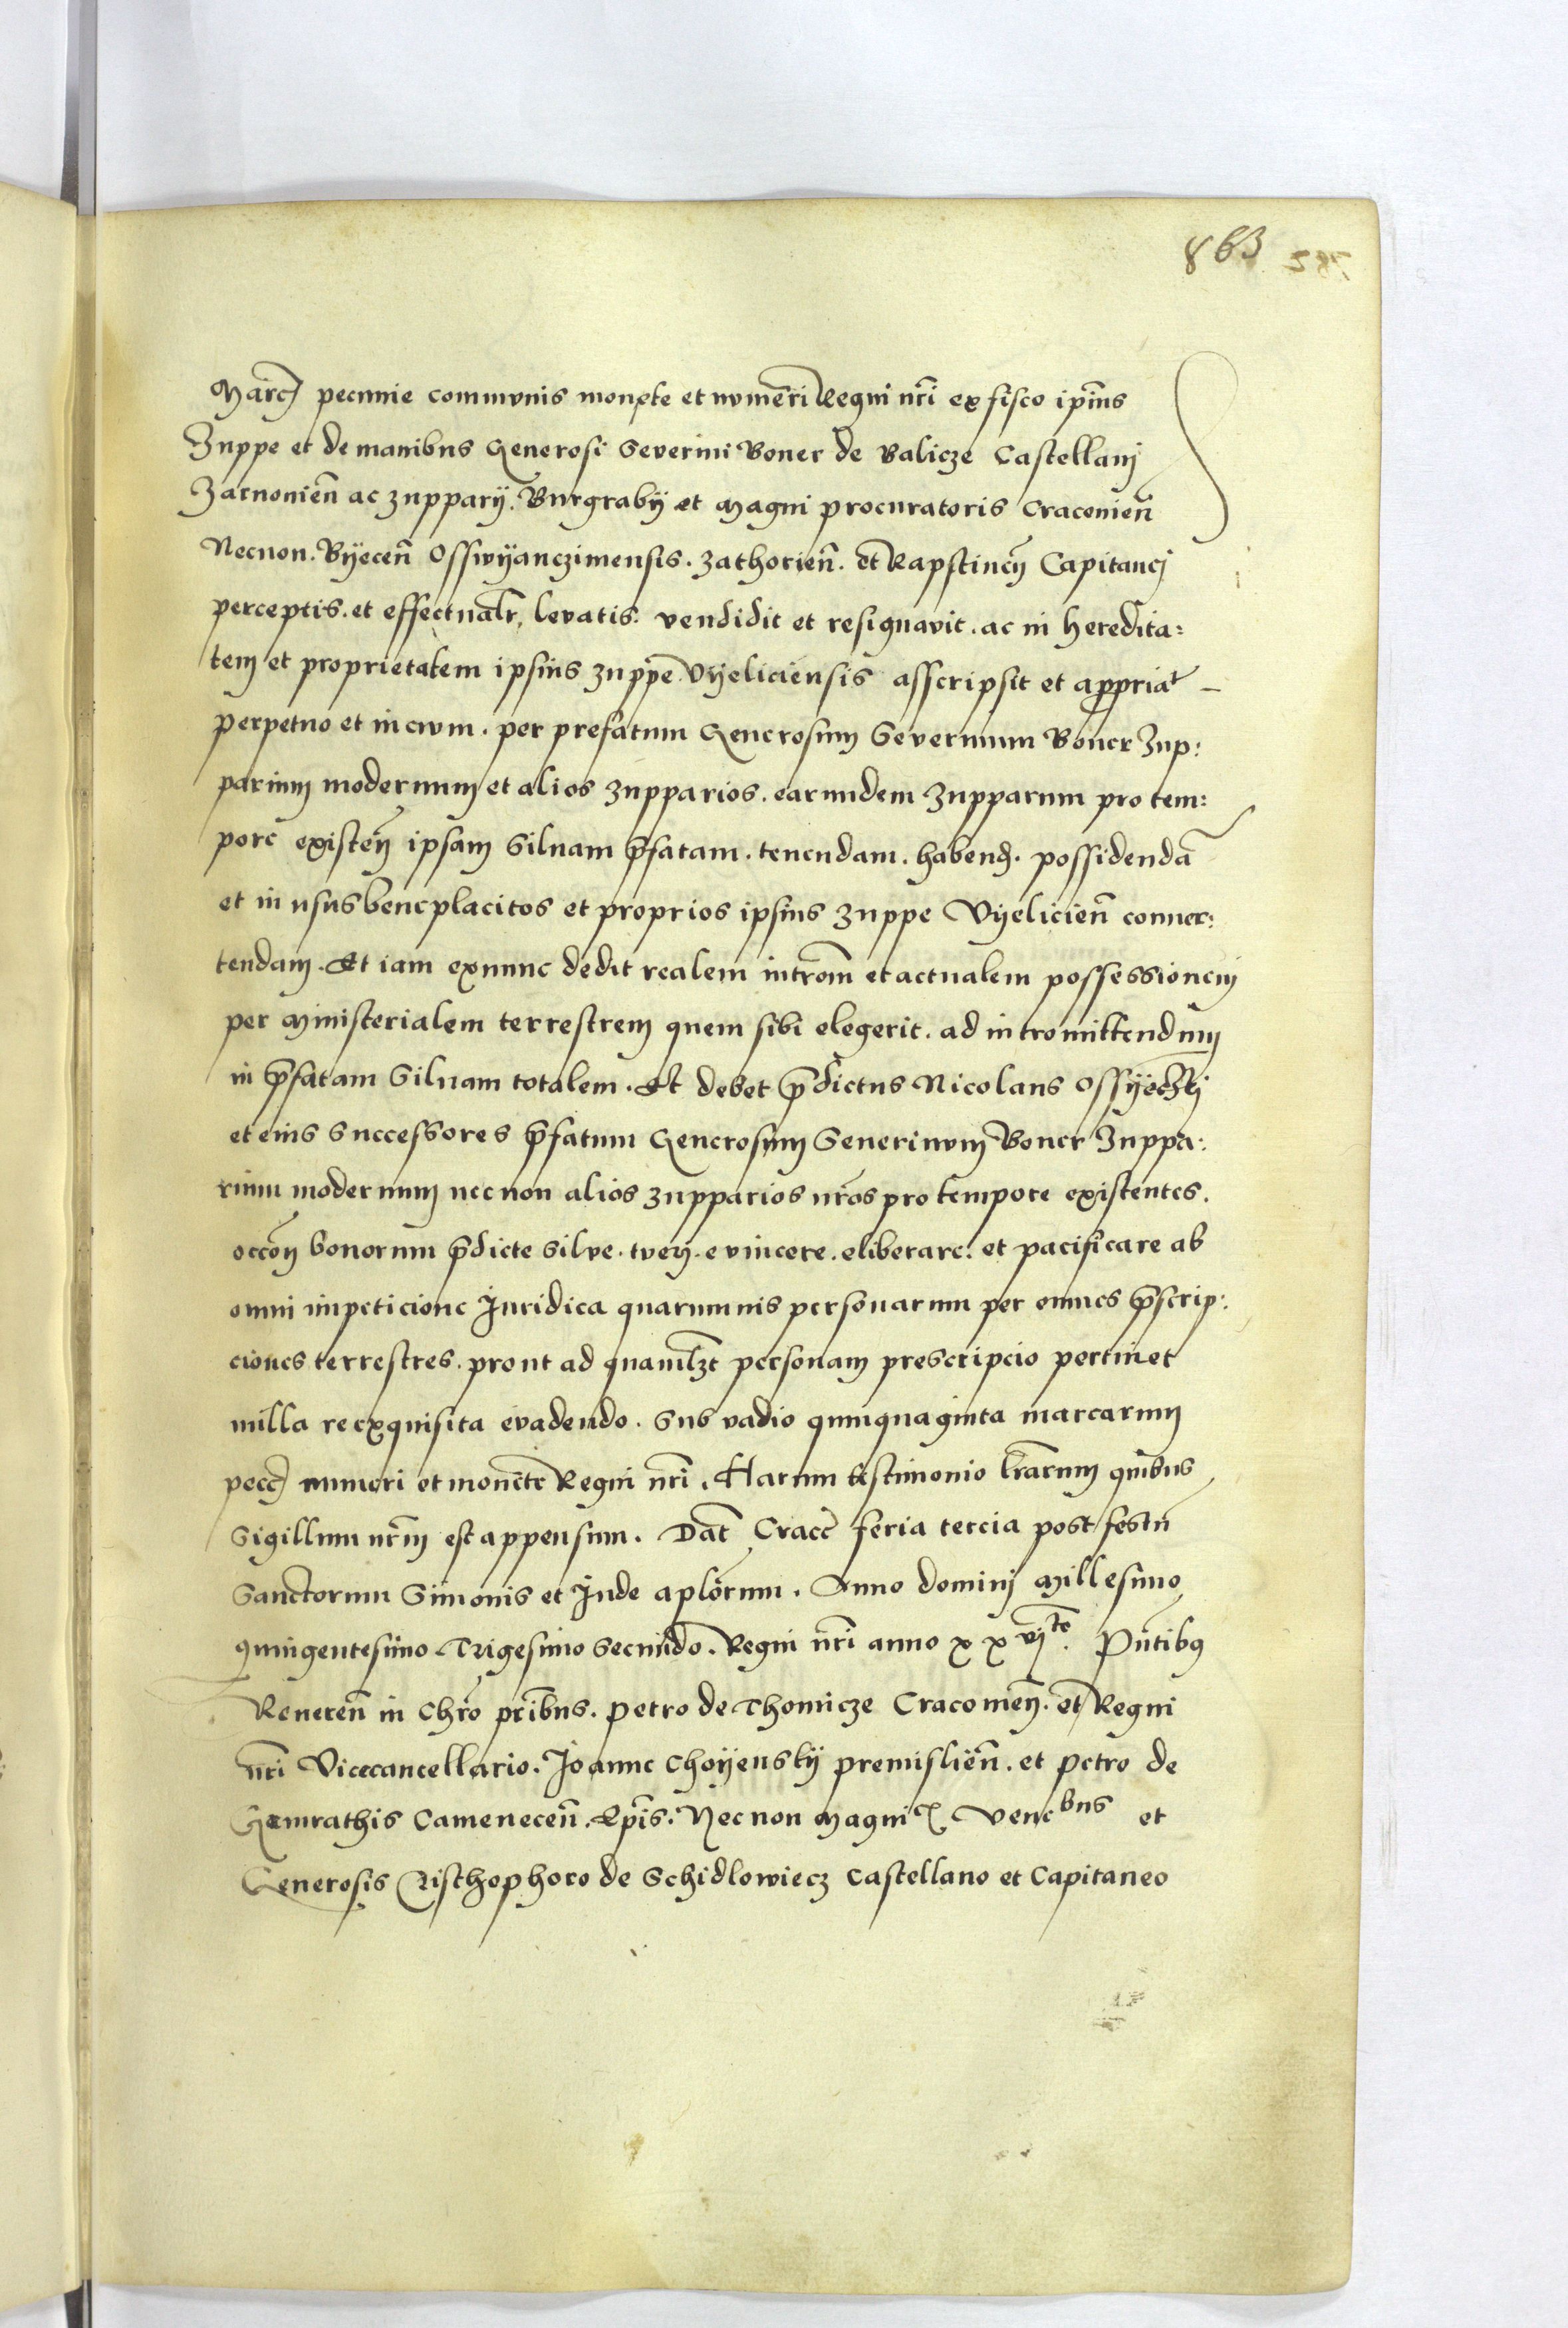 863 587
Marcis pecunie communis monete et numeri Regni nri ex fisco ipius
Zuppe et de manibus Generosi Severini Boner de Balicze Castellani
Zarnovien ac zupparij. Burgrabij et Magni procuratoris Cracovien
Necnon. Byecen Osswyanczimensis. zathorien. et Rapstinen Capitanei
perceptis. et effectualr, levatis. vendidit et resignavit. ac in heredita:
tem et proprietatem ipsius zuppe Vyeliciensis asscripsit et appriat
perpetuo et in evum. per prefatum Generosum Severinum Boner Zup:
parium modernum et alios zupparios. earundem zupparum pro tem:
pore existen ipsam Silvam pfatam. tenendam. habend. possidenda
et in usus beneplacitos et proprios ipsius zuppe Vyelicien conver:
tendam. Et iam exnunc dedit realem introm et actualem possessionem
per Ministerialem terrestrem quem sibi elegerit. ad intromittendum
in pfatam Silvam totalem. Et debet pdictus Nicolaus Ossyeczkj
et eius Successores pfatum Generosum Severinum Boner Zuppa:
rium modernum necnon alios zupparios nros pro tempore existentes.
occon bonorum pdicte Silve. tueri. evincere. eliberare. et pacificare ab
omni impeticione Juridica quarumvis personarum per omnes pscrip:
ciones terrestres. prout ad quamlzt personam prescripcio pertinet
nulla re exquisita evadendo. Sub vadio quinquaginta marcarum
pecc numeri et monete Regni nri. Harum testimonio lrarum quibus
Sigillum nrm est appensum. Dat Cracc feria tercia post festu
Sanctorum Simonis et Jude aplorum. Anno dominj Millesimo
quingentesimo Trigesimo Secundo. Regni nri anno xxvj to. Pntibus
Reveren in Chro pribus. Petro de Thomicze Cracovien. et Regni
nri Vicecancellario. Joanne Choyensky premislien. et Petro de
Gamrathis Camenecen. Epis. Necnon Magnicis Venebus et
Generosis Cristhophoro de Schidlowiecz Castellano et Capitaneo